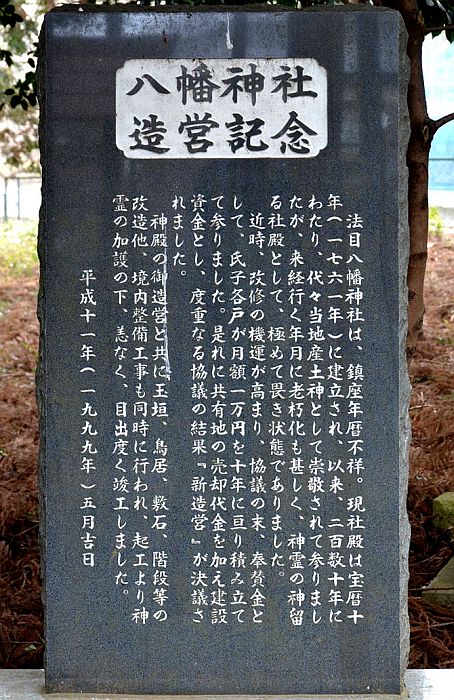 八幡神社
造営記念
法目八幡神社は、鎮座年暦不祥。現社殿は宝暦十
年(一七六一年)に建立され、以来、二百数十年に
わたり、代々当地産土神として崇敬されて参りまし
たが、来経行く年月に老朽化も甚しく、神霊の神留
る社殿として、極めて畏き状態でありました。
近時、改修の機運が高まり、協議の末、奉賛金と
して、氏子各戸が月額一万円を十年に亘り積み立て
て参りました。是れに共有地の売却代金を加え建設
資金とし、度重なる協議の結果『新造営』が決議さ
れました。
神殿の御造営と共に玉垣、鳥居、敷石、階段等の
改造他、境内整備工事も同時に行われ、起工より神
霊の加護の下、恙なく、目出度く竣工しました。
平成十一年(一九九九年)五月吉日